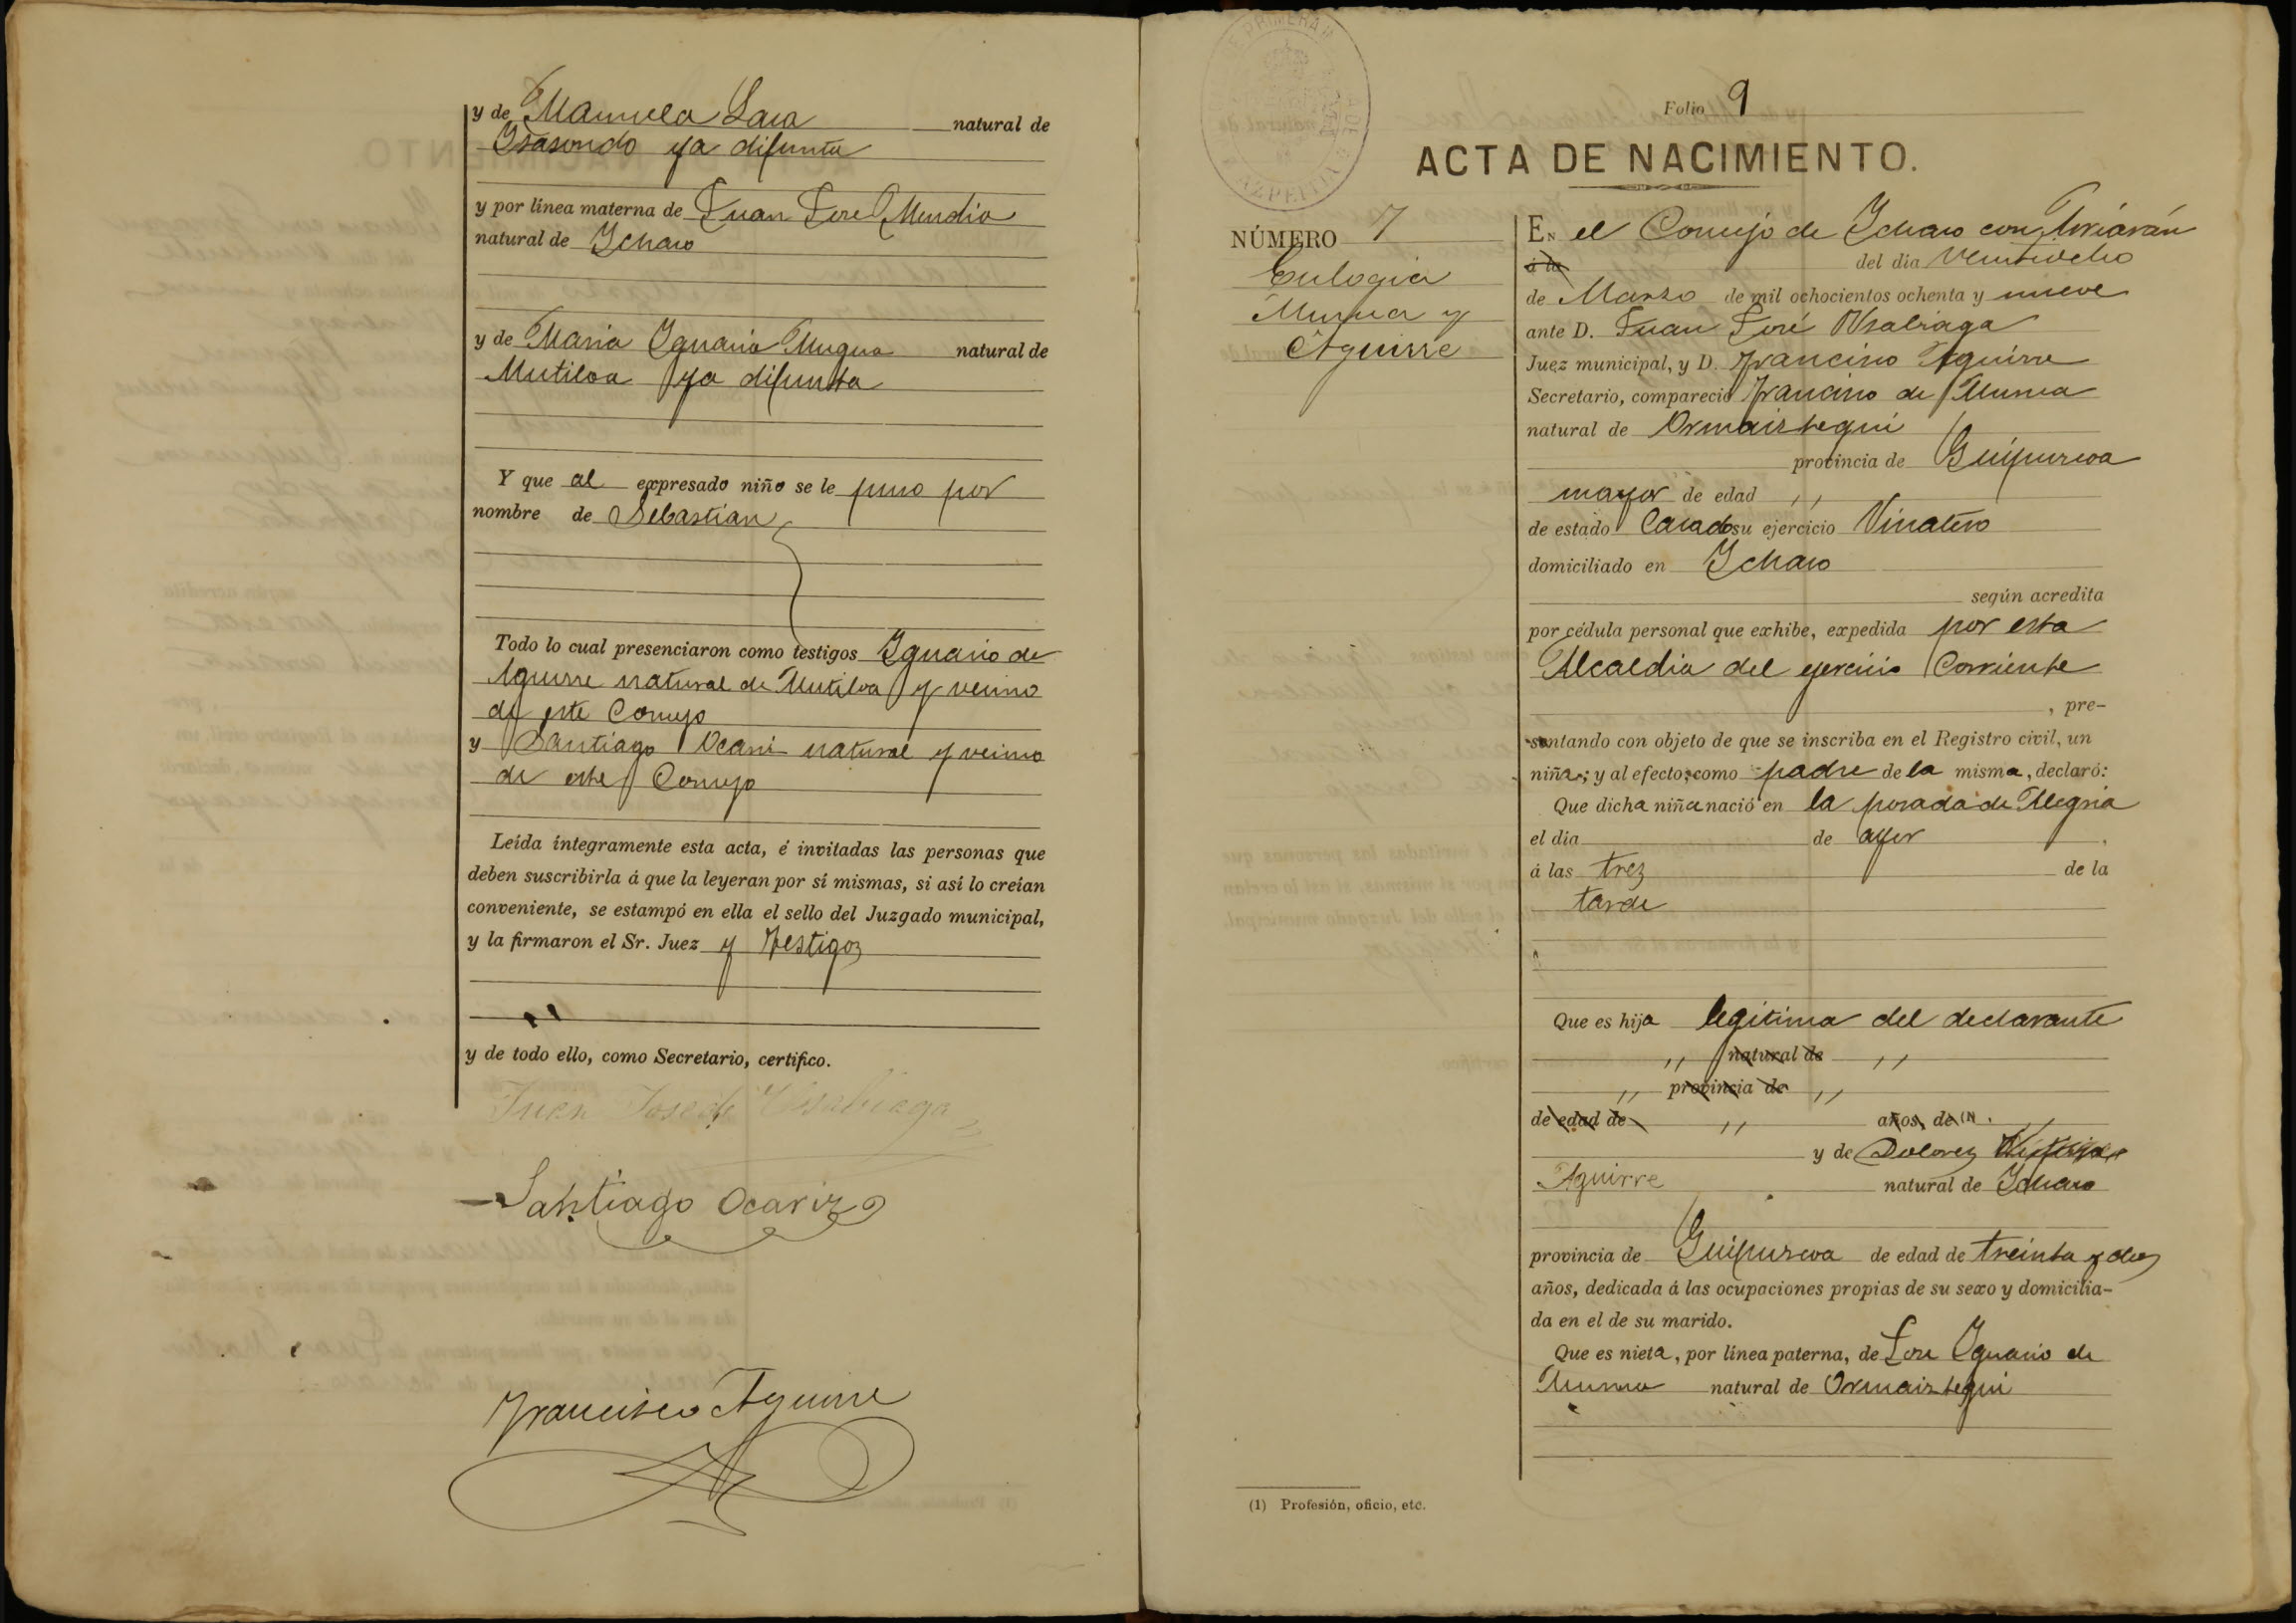 y de Manuela Lasa natural de
Isasondo ya difunta
y por línea materna de Juan José Mendia
natural de Ichaso
y de Maria Ignacia Mugica natural de
Mutiloa ya difunta
Y que al expresado niño se le puso por
nombre de Sebastian
Todo lo cual presenciaron como testigos Ignacio de
Aguirre natural de Mutiloa y vecino
de este Concejo
y Santiago Ocariz natural y vecino
de este Concejo
Leída íntegramente esta acta, é invitadas las personas que
deben suscribirla á que la leyeran por sí mismas, si así lo creían
conveniente, se estampó en ella el sello del Juzgado municipal,
y la firmaron el Sr. Juez y Testigoz
y de todo ello, como Secretario, certifico.
Juan Jose de Usabiaga
Santiago Ocariz
Francisco Aguirre
Folio 9
ACTA DE NACIMIENTO.
NÚMERO 7
Eulogia
Munua y
Aguirre
EN el Concejo de Ichaso con Arriarán
á la del día Veintiocho
de Marzo de mil ochocientos ochenta y nueve
ante D. Juan José Usabiaga
Juez municipal, y D. Francisco Aguirre
Secretario, compareció Francisco de Munua
natural de Ormaiztegui
provincia de Guipuzcoa
mayor de edad ,,
de estado Casado su ejercicio Vinatero
domiciliado en Ichaso
según acredita
por cédula personal que exhibe, expedida por esta
Alcaldia del ejercicio Corriente
, pre-
sentando con objeto de que se inscriba en el Registro civil, un
niña; y al efecto, como padre de la misma, declaró:
Que dicha niña nació en la posada de Alegria
el día de ayer
á las trez de la
tarde
Que es hija legitima del declarante
,, natural de ,,
,, provincia de ,,
de edad de ,, años, de (1)
y de Dolorez
Aguirre natural de Ichaso
provincia de Guipuzcoa de edad de treinta y doz
años, dedicada á las ocupaciones propias de su sexo y domicilia-
da en el de su marido.
Que es nieta, por línea paterna, de José Ignacio de
Munua natural de Ormaiztegui
(1) Profesión, oficio, etc.